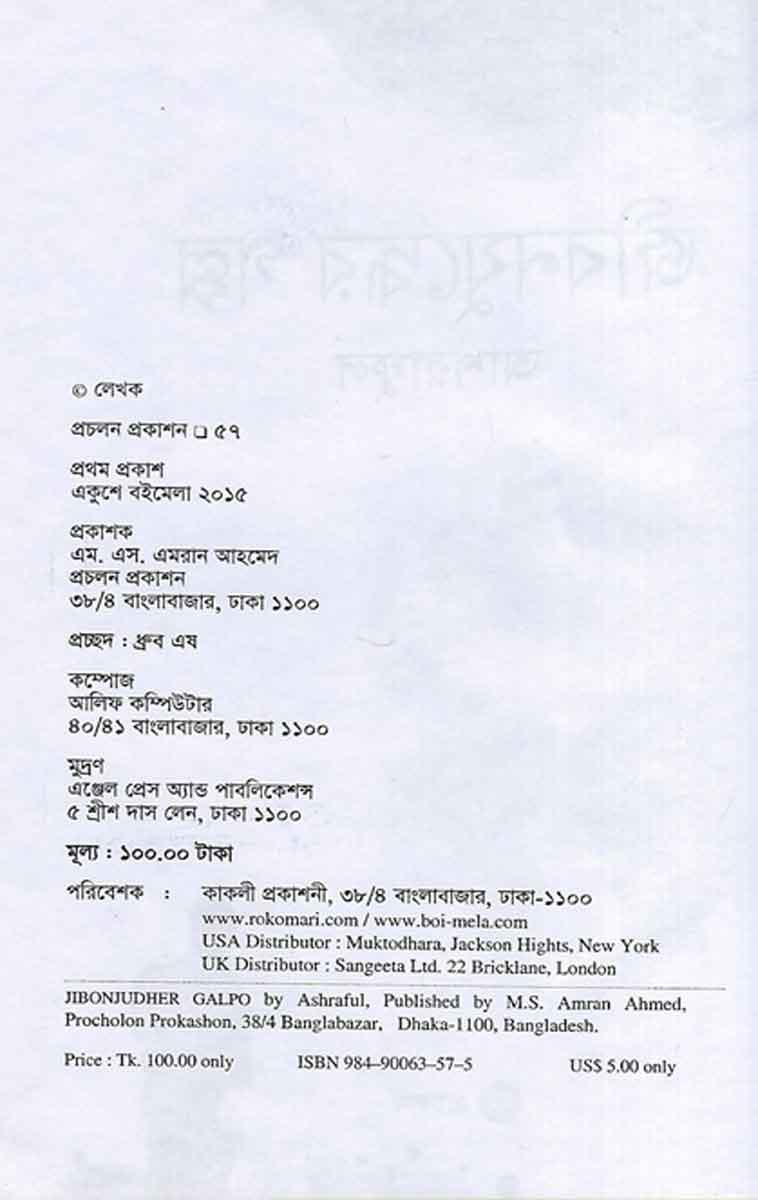 © লেখক
প্রচলন প্রকাশন ❏ ৫৭
প্রথম প্রকাশ
একুশে বইমেলা ২০১৫
প্রকাশক
এম. এস. এমরান আহমেদ
প্রচলন প্রকাশন
৩৮/৪ বাংলাবাজার, ঢাকা ১১০০
প্রচ্ছদ : ধ্রুব এষ
কম্পোজ
আলিফ কম্পিউটার
৪০/৪১ বাংলাবাজার, ঢাকা ১১০০
মুদ্রণ
এঞ্জেল প্রেস অ্যান্ড পাবলিকেশন্স
৫ শ্রীশ দাস লেন, ঢাকা ১১০০
মূল্য : ১০০.০০ টাকা
পরিবেশক : কাকলী প্রকাশনী, ৩৮/৪ বাংলাবাজার, ঢাকা-১১০০
www.rokomari.com / www.boi-mela.com
USA Distributor : Muktodhara, Jackson Hights, New York
UK Distributor : Sangeeta Ltd. 22 Bricklane, London
JIBONJUDHER GALPO by Ashraful, Published by M.S. Amran Ahmed,
Procholon Prokashon, 38/4 Banglabazar, Dhaka-1100, Bangladesh.
Price : Tk. 100.00 only ISBN 984–90063–57–5 US$ 5.00 only